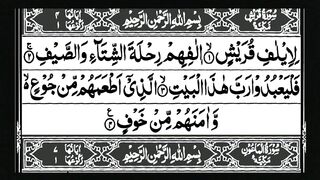 سُوْرَةُ قُرَيْشٍ بِسْمِ اللهِ الرَّحْمٰنِ الرَّحِيْمِ اٰيَاتُهَا ٤
لِاِيْلٰفِ قُرَيْشٍ ۙ۝١ اٖلٰفِهِمْ رِحْلَةَ الشِّتَآءِ وَالصَّيْفِ ۚ۝٢
فَلْيَعْبُدُوْا رَبَّ هٰذَا الْبَيْتِ ۙ۝٣ الَّذِيْۤ اَطْعَمَهُمْ مِّنْ جُوْعٍ ۙ۬
وَّاٰمَنَهُمْ مِّنْ خَوْفٍ ۠۝٤
سُوْرَةُ الْمَاعُوْنِ بِسْمِ اللهِ الرَّحْمٰنِ الرَّحِيْمِ